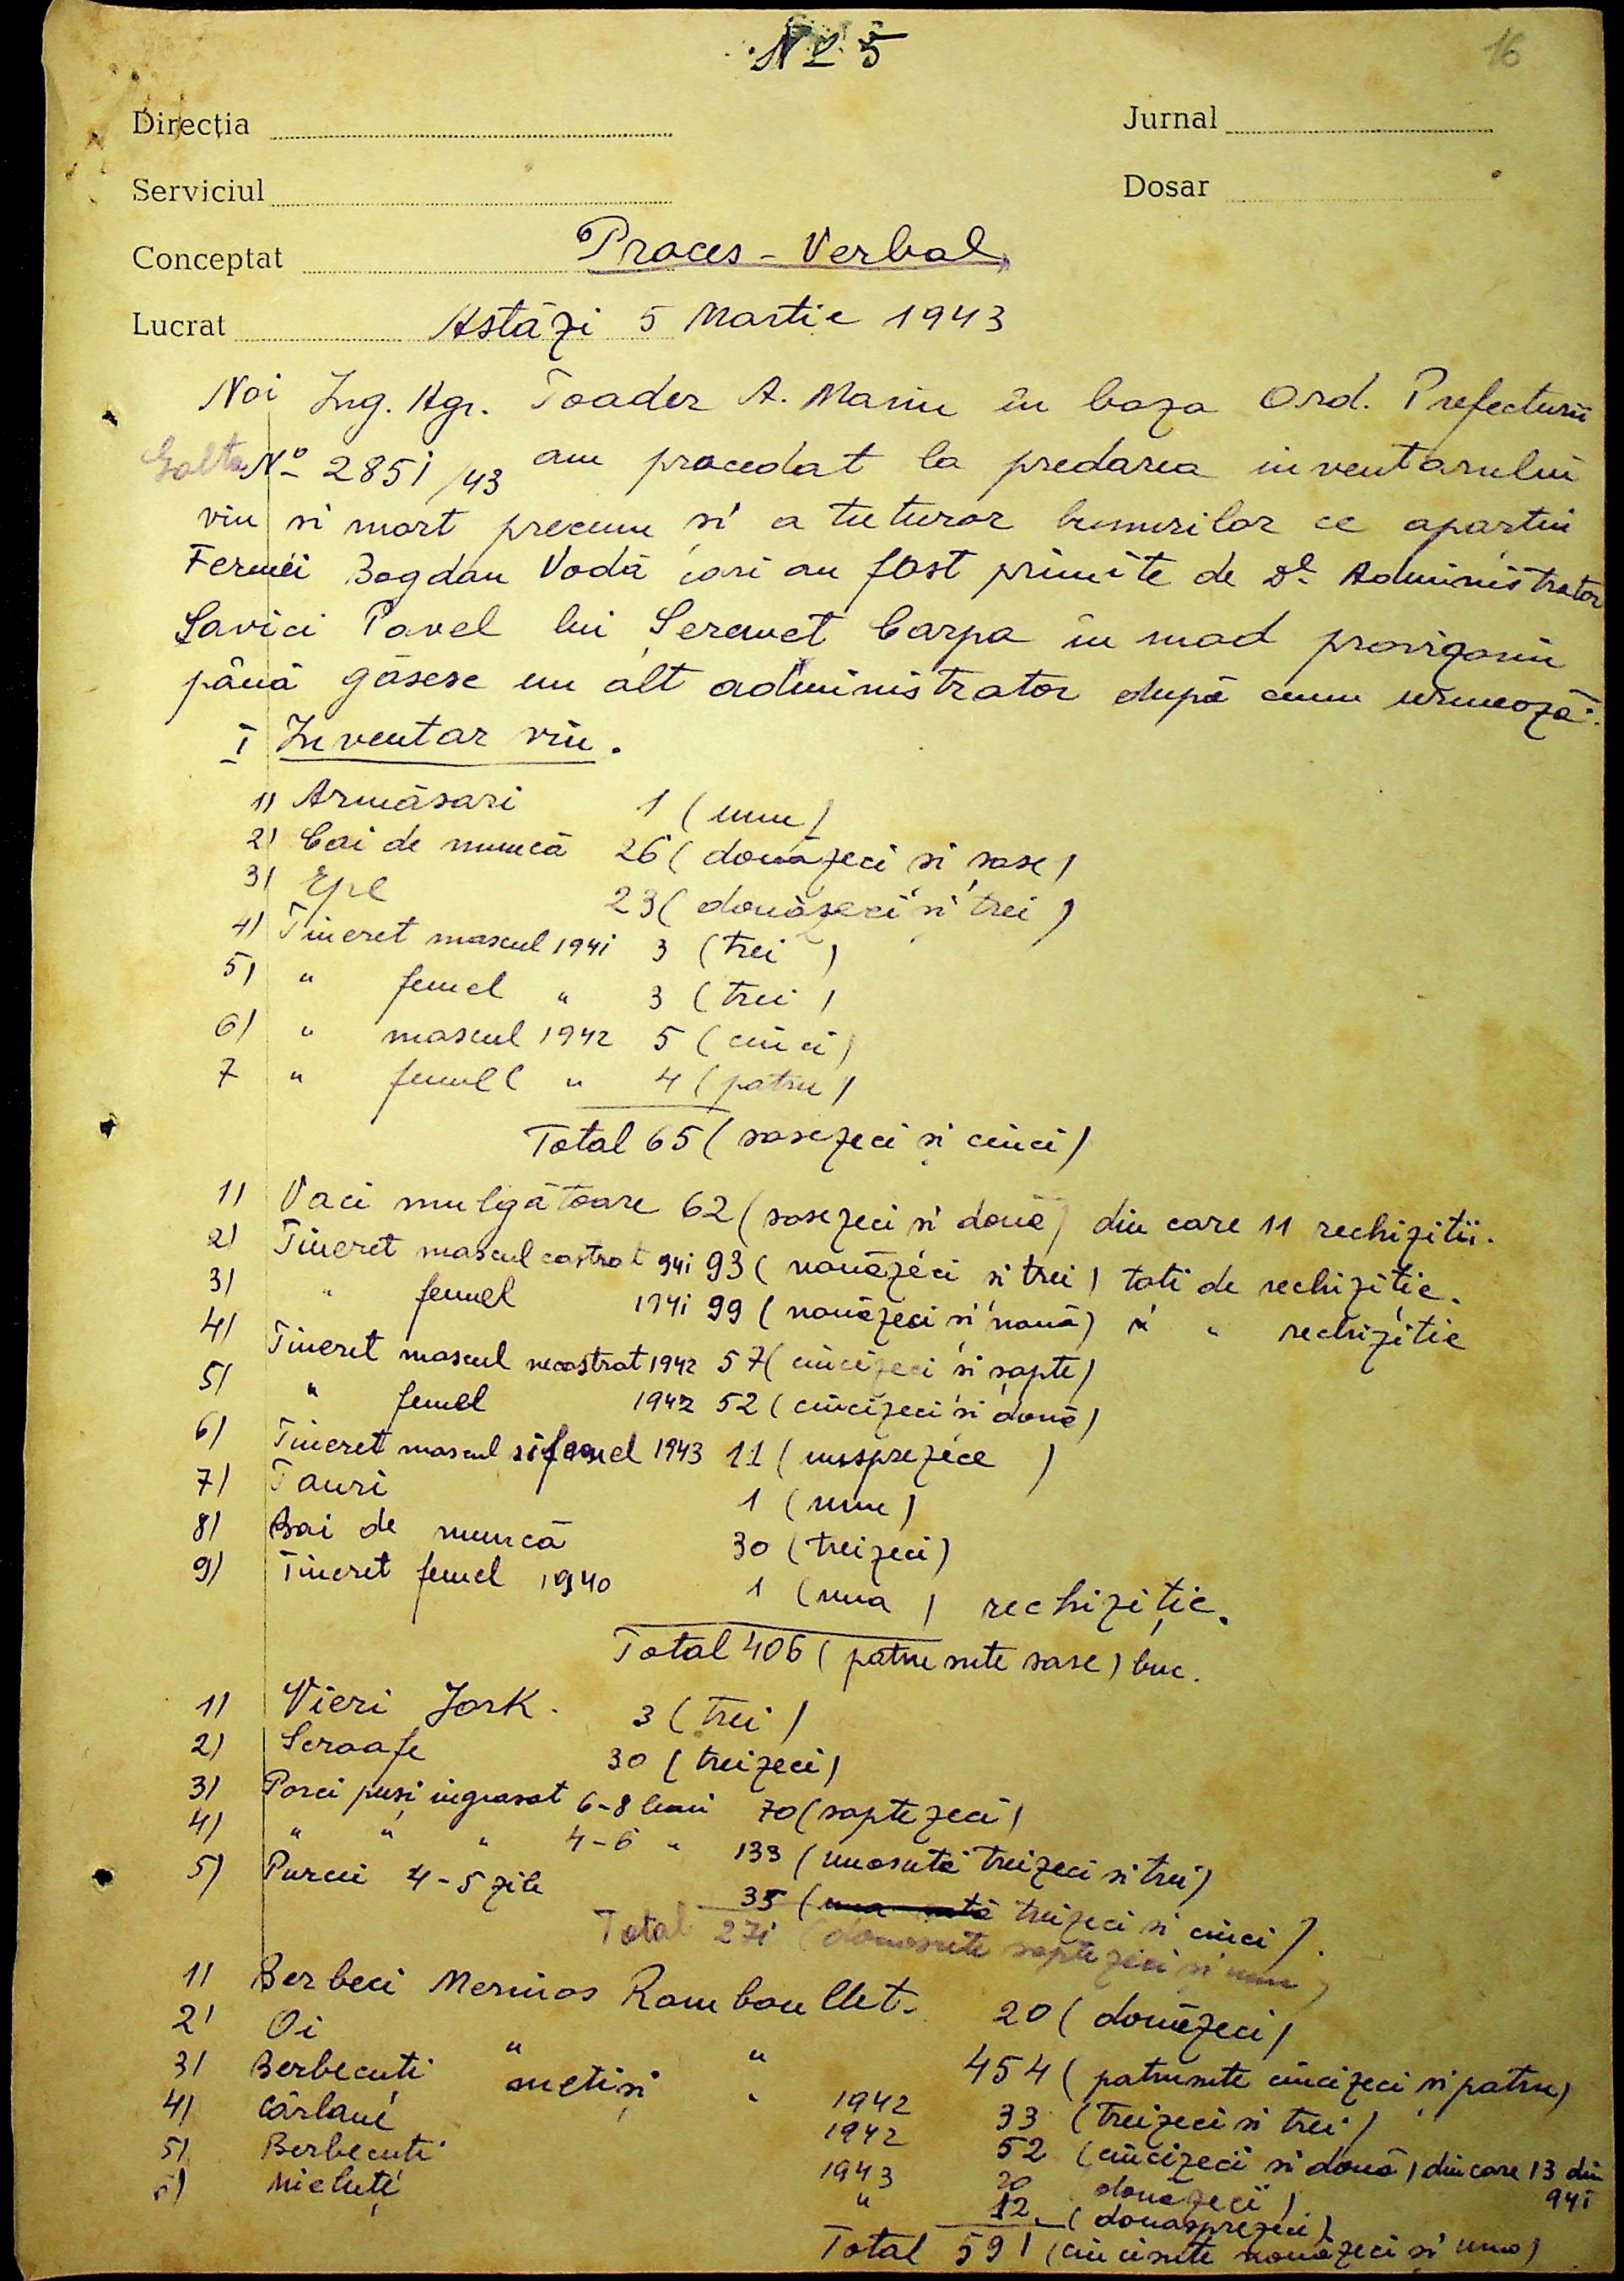 № 5
16
Direcția
Jurnal
Serviciul
Dosar
Conceptat
Proces-Verbal
Lucrat
Astăzi 5 Martie 1943
Noi Ing. Agr. Toader A. Marin în baza Ord. Prefecturii
Golta № 2851/43 am procedat la predarea inventarului
viu si mort precum și a tuturor bunurilor ce apartin
Fermei Bogdan Vodă cari au fost primite de Dl Administrator
Savici Pavel lui Carpa in mod provizoriu
până găsesc un alt administrator după cum urmează:
I Inventar viu.
1) Armăsari 1 (unu)
2) Cai de muncă 26 (douăzeci si sase)
3) Epe 23 (douăzeci si trei)
4) Tineret mascul 1941 3 (trei)
5) " femel " 3 (trei)
6) " mascul 1942 5 (cinci)
7 " femel " 4 (patru)
Total 65 (sasezeci si cinci)
1) Vaci mulgătoare 62 (sasezeci si două) din care 11 rechiziții.
2) Tineret mascul castrat 941 93 (nouăzeci si trei) toti de rechiziție.
3) " femel 1941 99 (nouăzeci si nouă) " " rechiziție
4) Tineret mascul necastrat 1942 57 (cincizeci si sapte)
5) " femel 1942 52 (cincizeci si două)
6) Tineret mascul si femel 1943 11 (unsprezece)
7) Tauri 1 (unu)
8) Boi de muncă 30 (treizeci)
9) Tineret femel 1940 1 (una) rechiziție.
Total 406 (patru sute sase) buc.
1) Vieri Jork. 3 (trei)
2) Scroafe 30 (treizeci)
3) Porci puși ingrasat 6-8 luni 70 (saptezeci)
4) " " " 4-6 " 133 (unasută treizeci si trei)
5) Purcei 4-5 zile 35 (una sută treizeci si cinci).
Total 271 (douasute saptezeci si unu)
1) Berbeci Merinos Rambouillet. 20 (douăzeci)
2) Oi " " 454 (patrusute cincizeci si patru)
3) Berbecuti metiși " 1942 33 (treizeci si trei)
4) Cârlani 1942 52 (cincizeci si două) din care 13 din 941
5) Berbecuti 1943 20 douăzeci)
6) Mieluți " 12 (douasprezeci)
Total 591 (cincisute nouăzeci și unu)